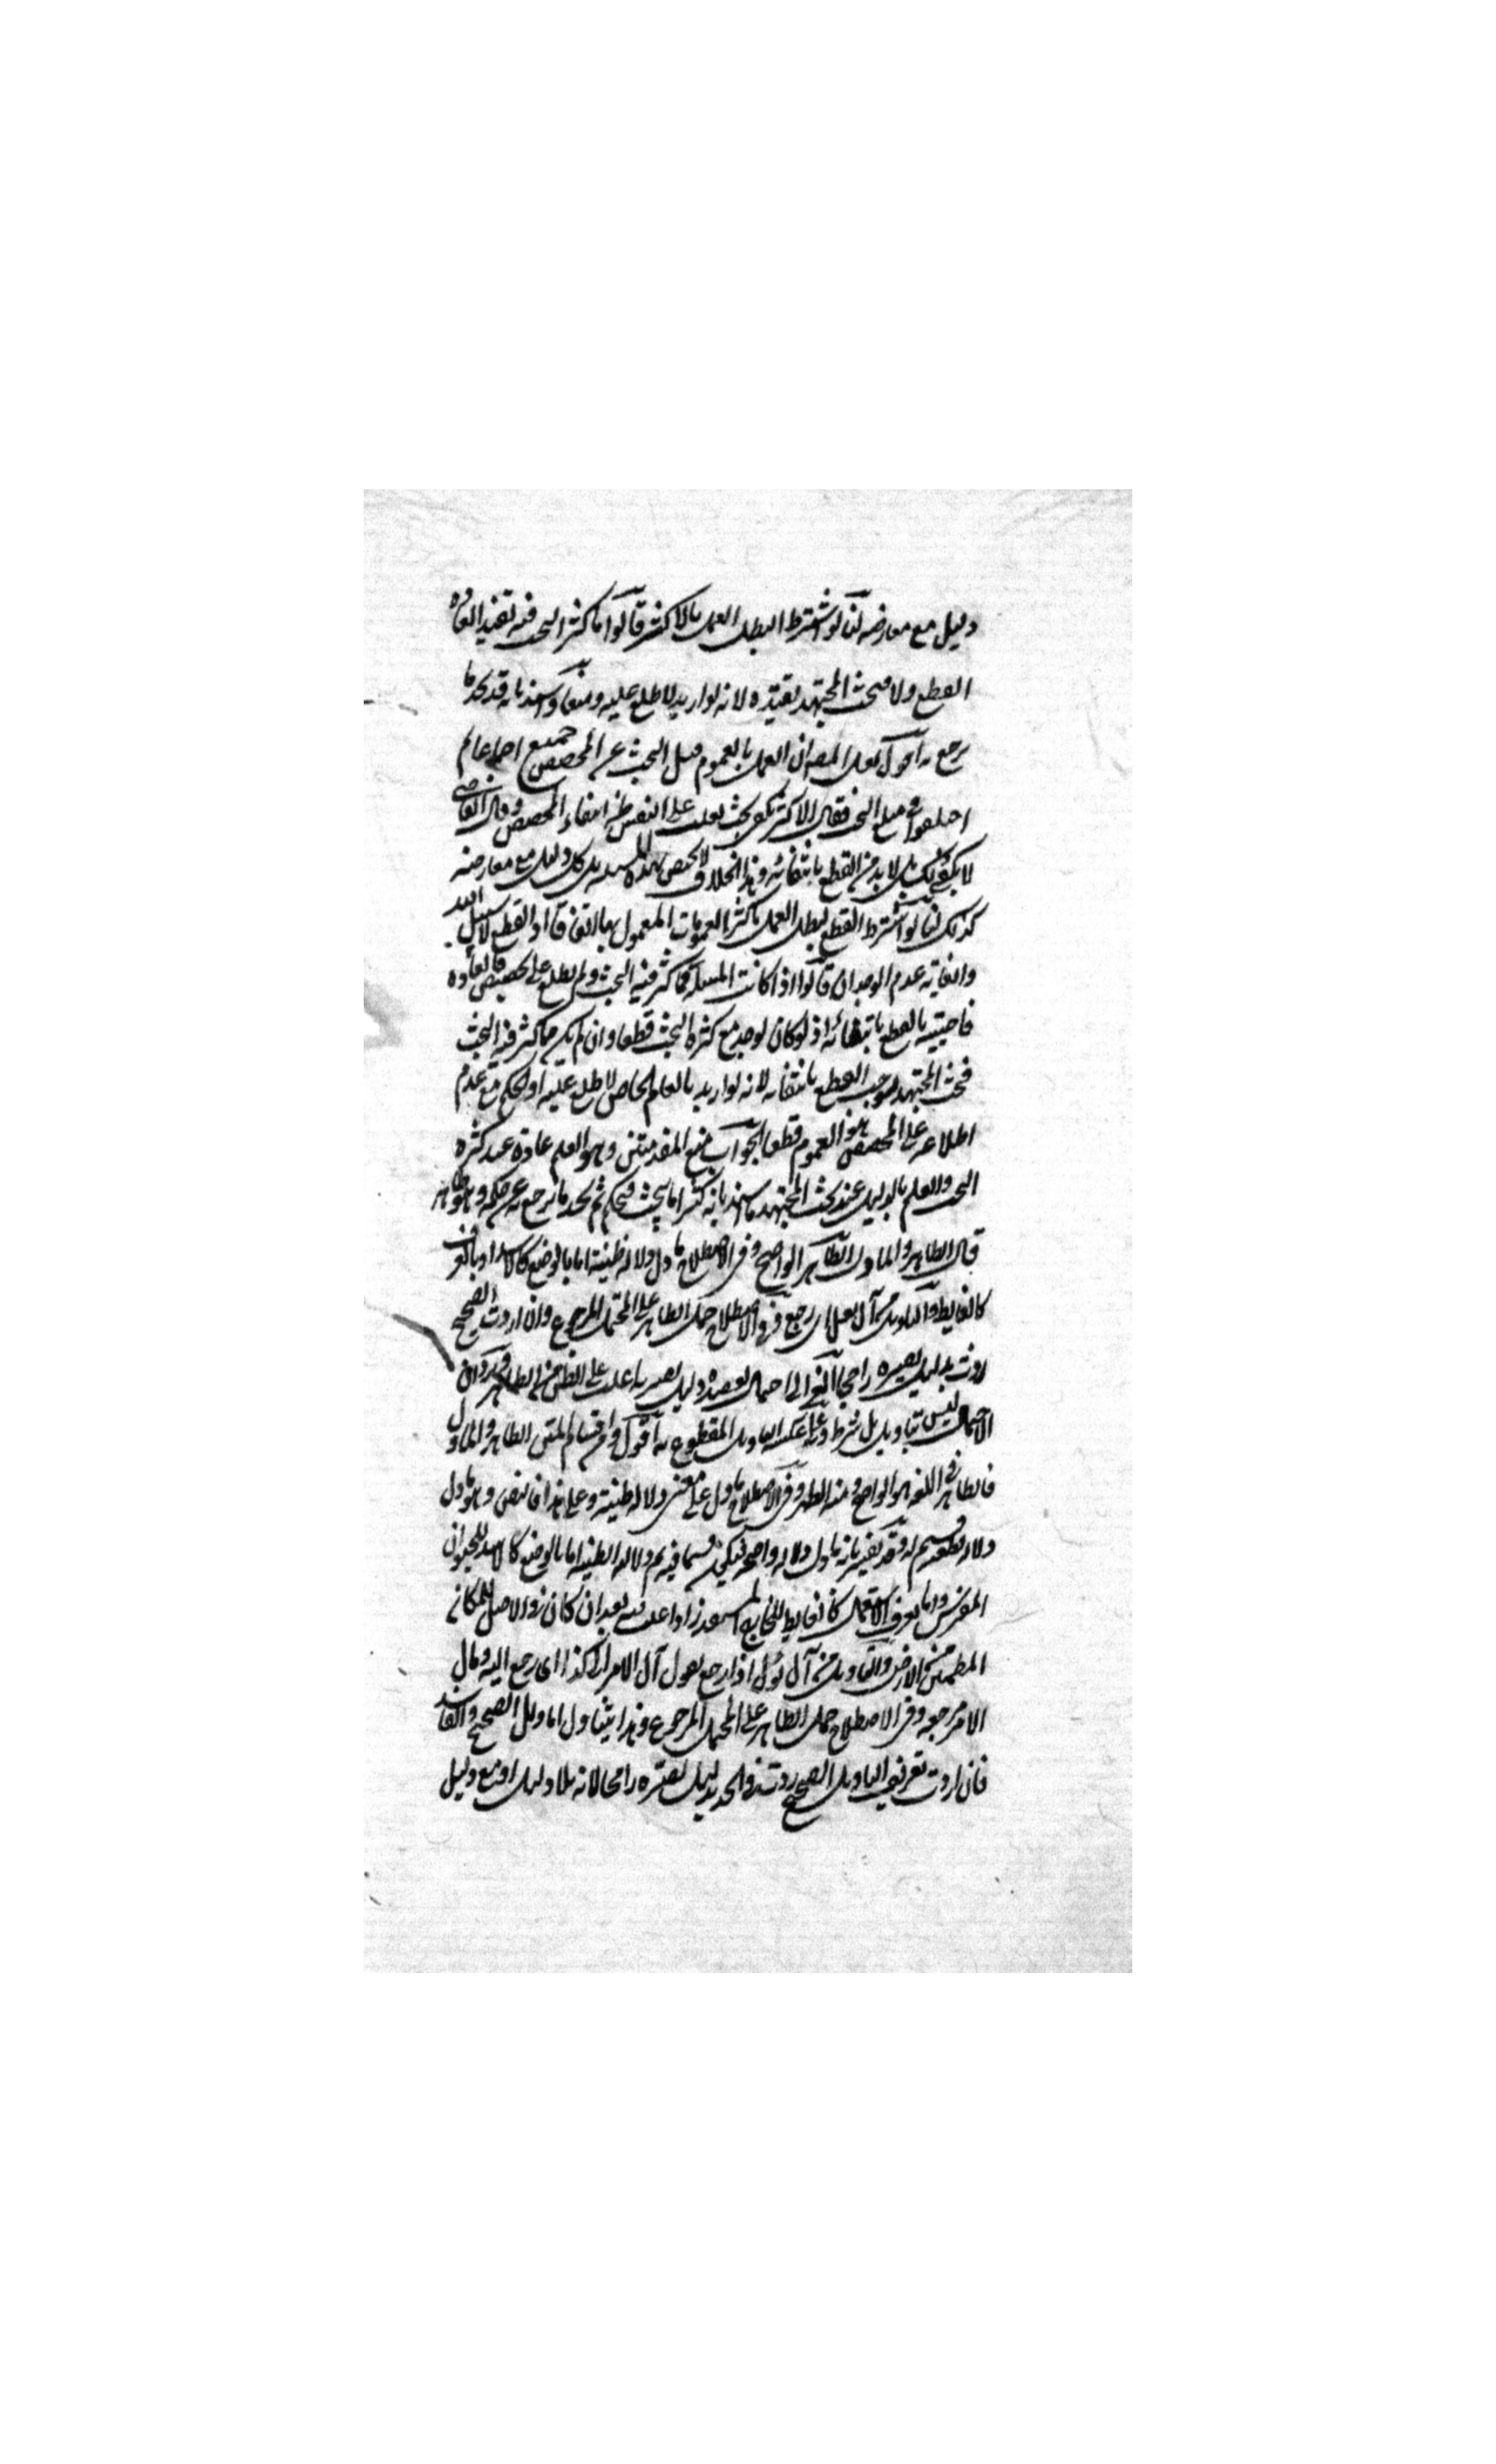 دليل مع معارضه لنا لو اشترط لبطل العمل بالاكثر قالوا ما كثر البحث فيه تفيد العادة
القطع ولا فبحث المجتهد يفيده لانه لو اريد لاطلع عليه ومنعا واسند بانه قد يجد ما
يرجع به اقول لعل المصـ ان العمل بالعموم قبل البحث عن المخصص ممتنع اجماعا ثم
اختلفوا في مبلغ البحث فقال الاكثر يكفي بحث يغلب على النفس ظن انتفاء المخصص وقال القاضي
لا يكفي ذلك بل لا بد من القطع بانتفائه وهذا الخلاف لا يختص بهذه المسئلة بل كل دليل مع معارضه
كذلك لنا لو اشترط القطع لبطل العمل باكثر العمومات المعمول بها اتفاقا اذ القطع لا سبيل اليه
والغاية عدم الوجدان قالوا اذا كانت المسئلة مما كثر فيه البحث ولم يطلع على تخصيص فالعادة
قاضية بالقطع بانتفائه اذ لو كان لوجد مع كثرة البحث قطعا وان لم يكن مما كثر فيه البحث
فبحث المجتهد يوجب القطع بانتفائه لانه لو اريد بالعام الخاص لاطلع عليه اذ الحكم مع عدم
اطلاعه على المخصص هو العموم قطعا الجواب منع المقدمتين وهو العلم عادة عند كثرة
البحث والعلم بالدليل عند بحث المجتهد واسند بانه كثيرا ما يبحث فيحكم ثم يجد ما يرجع به عن حكمه وهو ظاهر
قال الظاهر والماول الظاهر الواضح وفي الاصطلاح ما دل دلالة ظنية اما بالوضع كالاسد او بالعرف
كالغايط والتاويل من آل يؤل اى رجع وفي الاصطلاح حمل الظاهر على المحتمل المرجوح وان اردت الصحيح
زدت بدليل يصيره راجحا الغزالي احتمال يعضده دليل يصير به اغلب على الظن من الظاهر ويرد ان
الاحتمال ليس بتاويل بل شرط وعلى عكسه التاويل المقطوع به اقول ومن اقسام المتن الظاهر والماول
فالظاهر في اللغة هو الواضح ومنه الظهر وفي الاصطلاح ما دل على معنى دلالة ظنية وعلى هذا فالنص وهو ما دل
دلالة قطعية قسيم له وقد يفسر بانه ما دل دلالة واضحة فيكون قسما فيه ثم دلالة الظنية اما بالوضع كالاسد للحيوان
المفترس واما بعرف الاستعمال كالغايط للخارج المستقذر اذا غلب فيه بعد ان كان في الاصل للمكان
المطمئن من الارض والتاويل من آل يؤل اذا رجع يقول آل الامر الى كذا اى رجع اليه ومآل
الامر مرجعه وفي الاصطلاح حمل الظاهر على المحتمل المرجوح وهذا يتناول التاويل الصحيح والفاسد
فان اردت تعريف التاويل الصحيح زدت في الحد بدليل يصيره راجحا لانه بلا دليل او مع دليل